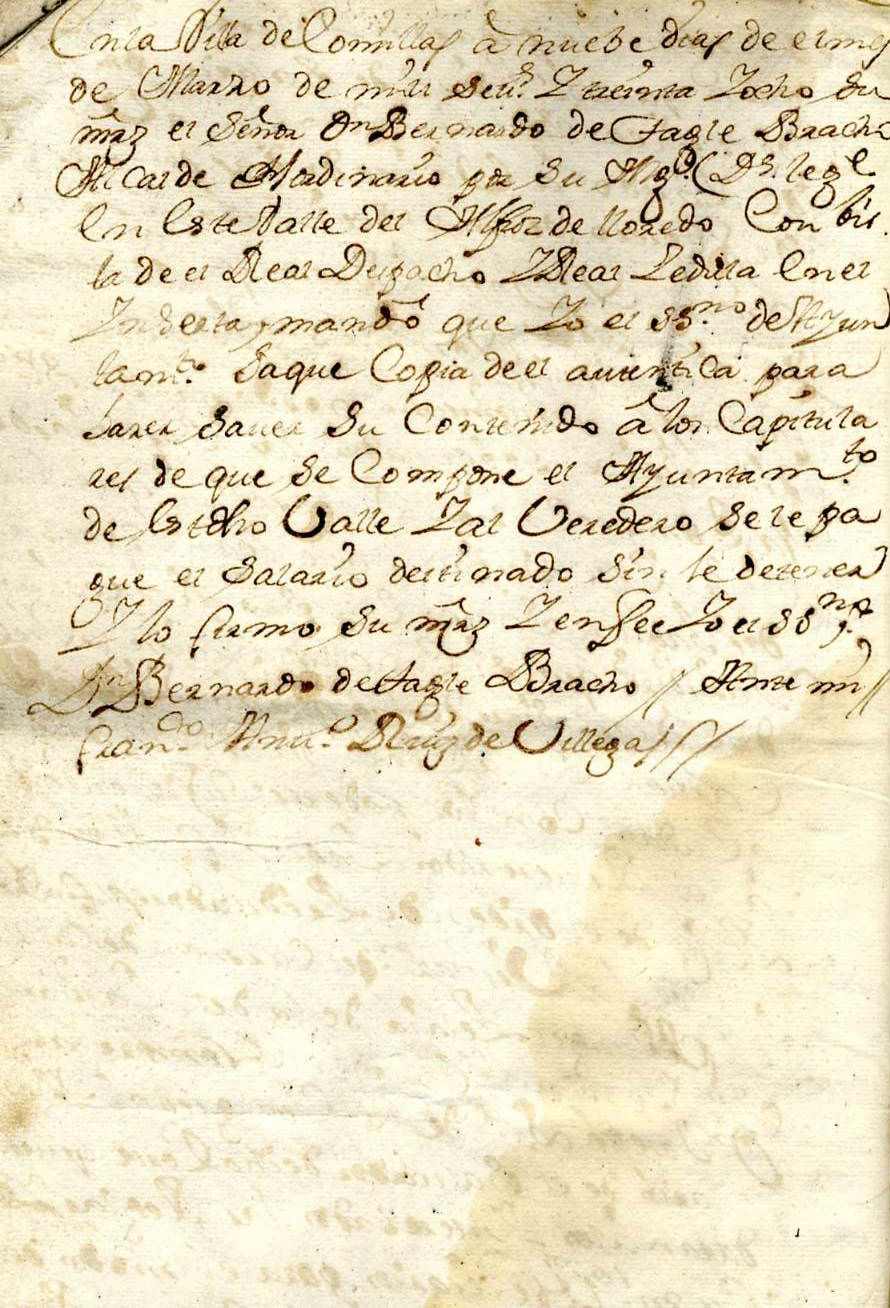 En la Villa de Comillas â nuebe dias de el mes
de Marzo de mill sett.s Y treinta Yocho su
mrz el Señor Dn Bernardo de Tagle Bracho
Alcalde Hordinario por su Mgd (Ds. legue
En Este Valle del Alfoz de lloredo Con bis
ta de el Real Despacho YReal Zedula En el
Ynserta, mandó que Yo el ss.no de Ayun
tamt.o saque Copia de el autentica para
hazer sauer su Contenido â los Capitula
res de que se Compone el Ayuntam.to
de Estedho Valle Yal Veredero se le pa
gue el salario destinado sin le detener
Y lo firmo su mrz Y enfee Yo el ss.no
Dn Bernardo de Tagle Bracho // Ante mi //
fran.do Anttt.o Ruiz de Villegas //